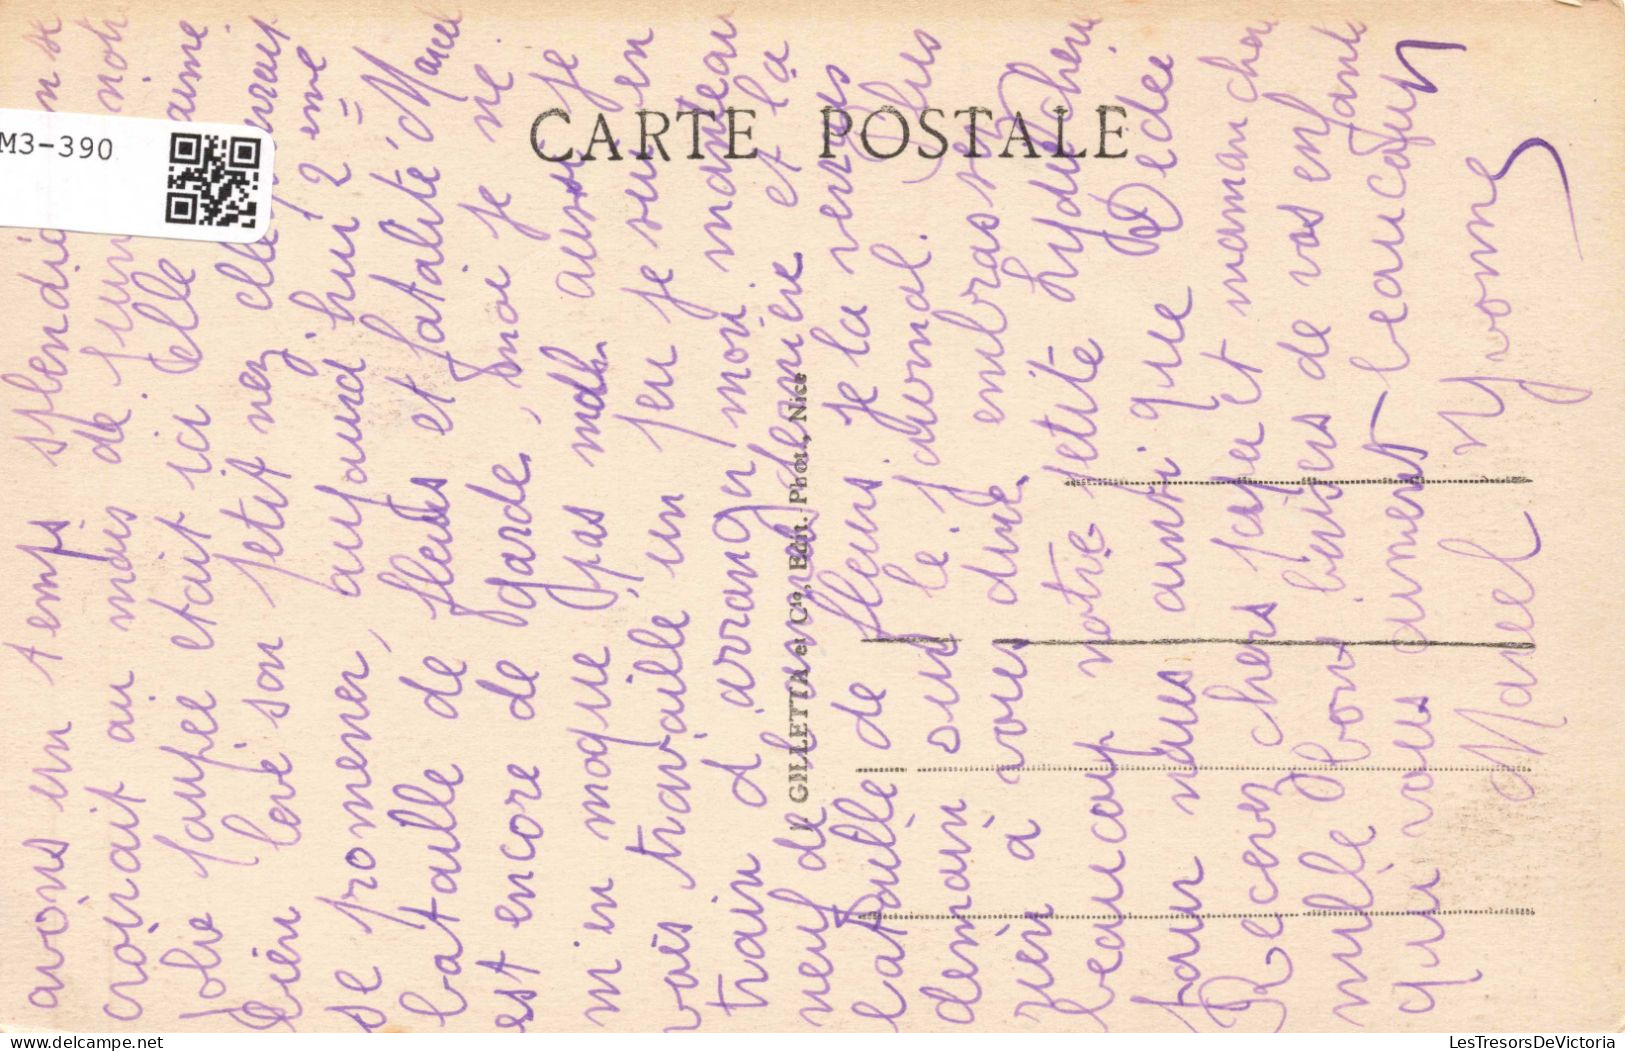 M3-390
CARTE POSTALE
GILLETTA et Cie, Edit. Phot., Nice
avons un temps splendid on se
croirait au mois de juin notre
Jolie poupée était ici elle aime
bien levé son petit nez elle
se promener, aujourd'hui 2 eme
bataille de fleurs et fatalité Marcel
est encore de garde, moi je ne
m'en moque pas mal. aussi je
vais travaillé un peu je suis en
train d'arranger mon manteau
neuf de l'année dernière et la
bataille de fleurs je la verrais
demain sur le journal. Plus
rien à vous dire embrassez
beaucoup notre petite Lydie cherie
pour nous ainsi que Dédée
Recevez chers papa et maman cheri
mille bons baisers de vos enfants
qui vous aiment beaucoup
Marcel Yvonne
LesTresorsDeVictoria
www.delcampe.net